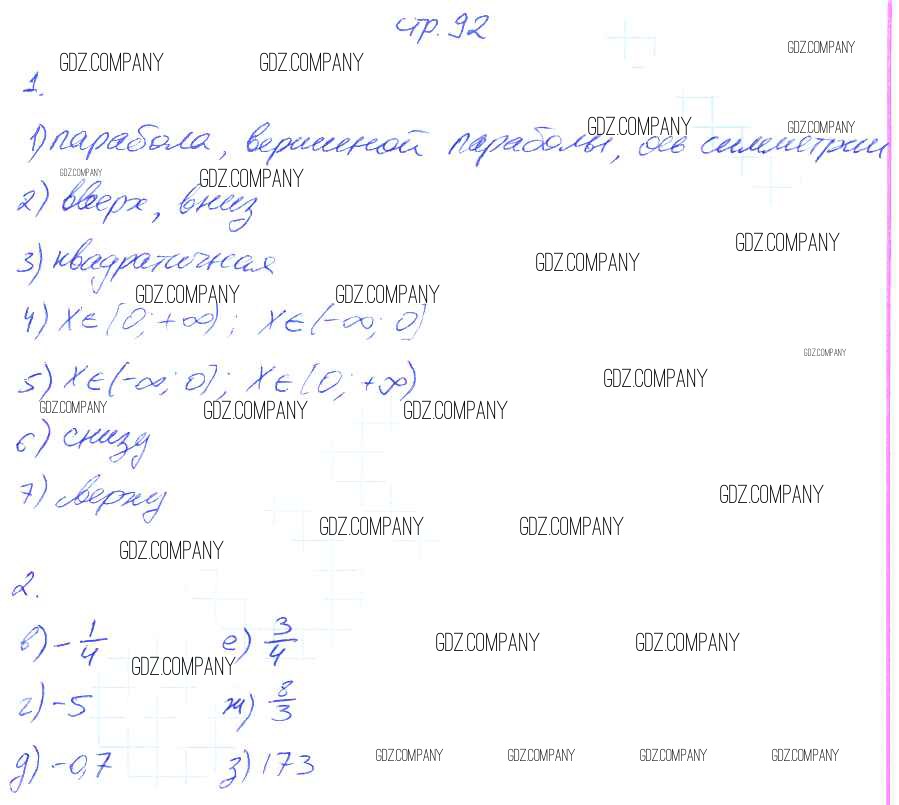 стр. 92
GDZ.COMPANY GDZ.COMPANY GDZ.COMPANY
1.
GDZ.COMPANY GDZ.COMPANY
1) парабола, вершиной параболы, ось симметрии
GDZ.COMPANY GDZ.COMPANY
2) вверх, вниз
GDZ.COMPANY
3) квадратичная
GDZ.COMPANY
GDZ.COMPANY GDZ.COMPANY
4) x∈[0; +∞); x∈(-∞; 0]
GDZ.COMPANY
5) x∈(-∞; 0]; x∈[0; +∞)
GDZ.COMPANY
GDZ.COMPANY GDZ.COMPANY GDZ.COMPANY
6) снизу
7) сверху
GDZ.COMPANY
GDZ.COMPANY GDZ.COMPANY
GDZ.COMPANY
2.
в) -1/4 е) 3/4
GDZ.COMPANY GDZ.COMPANY
GDZ.COMPANY
г) -5 ж) 8/3
д) -0,7 з) 173
GDZ.COMPANY GDZ.COMPANY GDZ.COMPANY GDZ.COMPANY